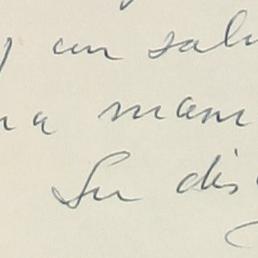 y un salu
na mam
Su dis